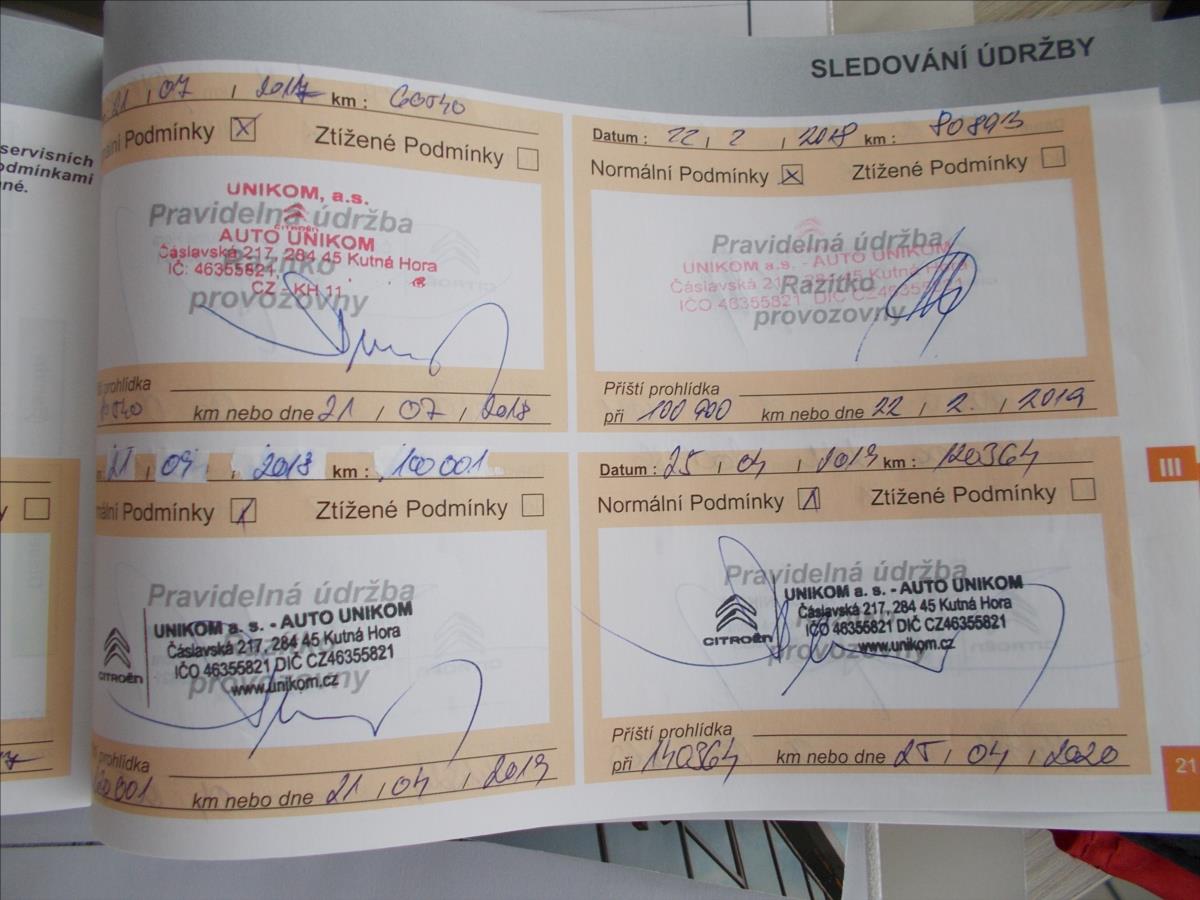 SLEDOVÁNÍ ÚDRŽBY
servisních
odmínkami
né.
21 / 07 / 2017 km : 60540
ální Podmínky X Ztížené Podmínky
UNIKOM, a.s.
Pravidelná údržba
CITROËN
AUTO UNIKOM
Čáslavská 217, 284 45 Kutná Hora
Razítko
IČ: 46355821,
CZ - KH 11
provozovny
í prohlídka
km nebo dne 21 / 07 / 2018
Datum : 22 / 2 / 2018 km : 80893
Normální Podmínky X Ztížené Podmínky
Pravidelná údržba
UNIKOM a.s. - AUTO UNIKOM
Čáslavská 217, 284 45 Kutná Hora
Razítko
IČO 46355821 DIČ CZ46355821
provozovny
Příští prohlídka
při 100 900 km nebo dne 22 / 2. / 2019
21 / 09 / 2018 km : 100001
ální Podmínky Ztížené Podmínky
Pravidelná údržba
UNIKOM a. s. - AUTO UNIKOM
Čáslavská 217, 284 45 Kutná Hora
IČO 46355821 DIČ CZ46355821
CITROËN
www.unikom.cz
provozovny
í prohlídka
120001 km nebo dne 21 / 04 / 2019
Datum : 25 / 04 / 2019 km : 120364
Normální Podmínky Ztížené Podmínky
Pravidelná údržba
UNIKOM a. s. - AUTO UNIKOM
Čáslavská 217, 284 45 Kutná Hora
CITROËN
IČO 46355821 DIČ CZ46355821
www.unikom.cz
provozovny
Příští prohlídka
při 140364 km nebo dne 25 / 04 / 2020
III
21